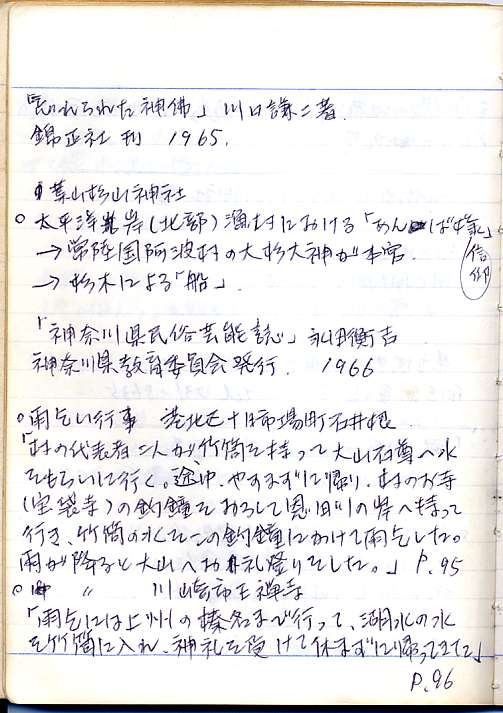 「忘れられた神佛」川口謙二著.
錦正社刊 1965.
葉山杉山神社
○太平洋岸(北部)漁村における「あんば様」信仰
→常陸国阿波村の大杉大神が本宮.
→杉木による「船」.
「神奈川県民俗芸能誌」永田衡吉
神奈川県教育委員会発行. 1966
○雨乞い行事 港北区十日市場町石井根
「村の代表者二人が竹筒を持って大山石尊へ水
をもらいに行く。途中、やすまずに帰り、村のお寺
(宝袋寺)の釣鐘をおろして恩田川の岸へ持って
行き、竹筒の水をこの釣鐘にかけて雨乞した。
雨が降ると大山へお礼登りをした。」P.95
○ 〃 川崎市王禅寺
「雨乞には上州の榛名まで行って、湖水の水
を竹筒に入れ、神札を受けて休まずに帰ってきた」
P.96